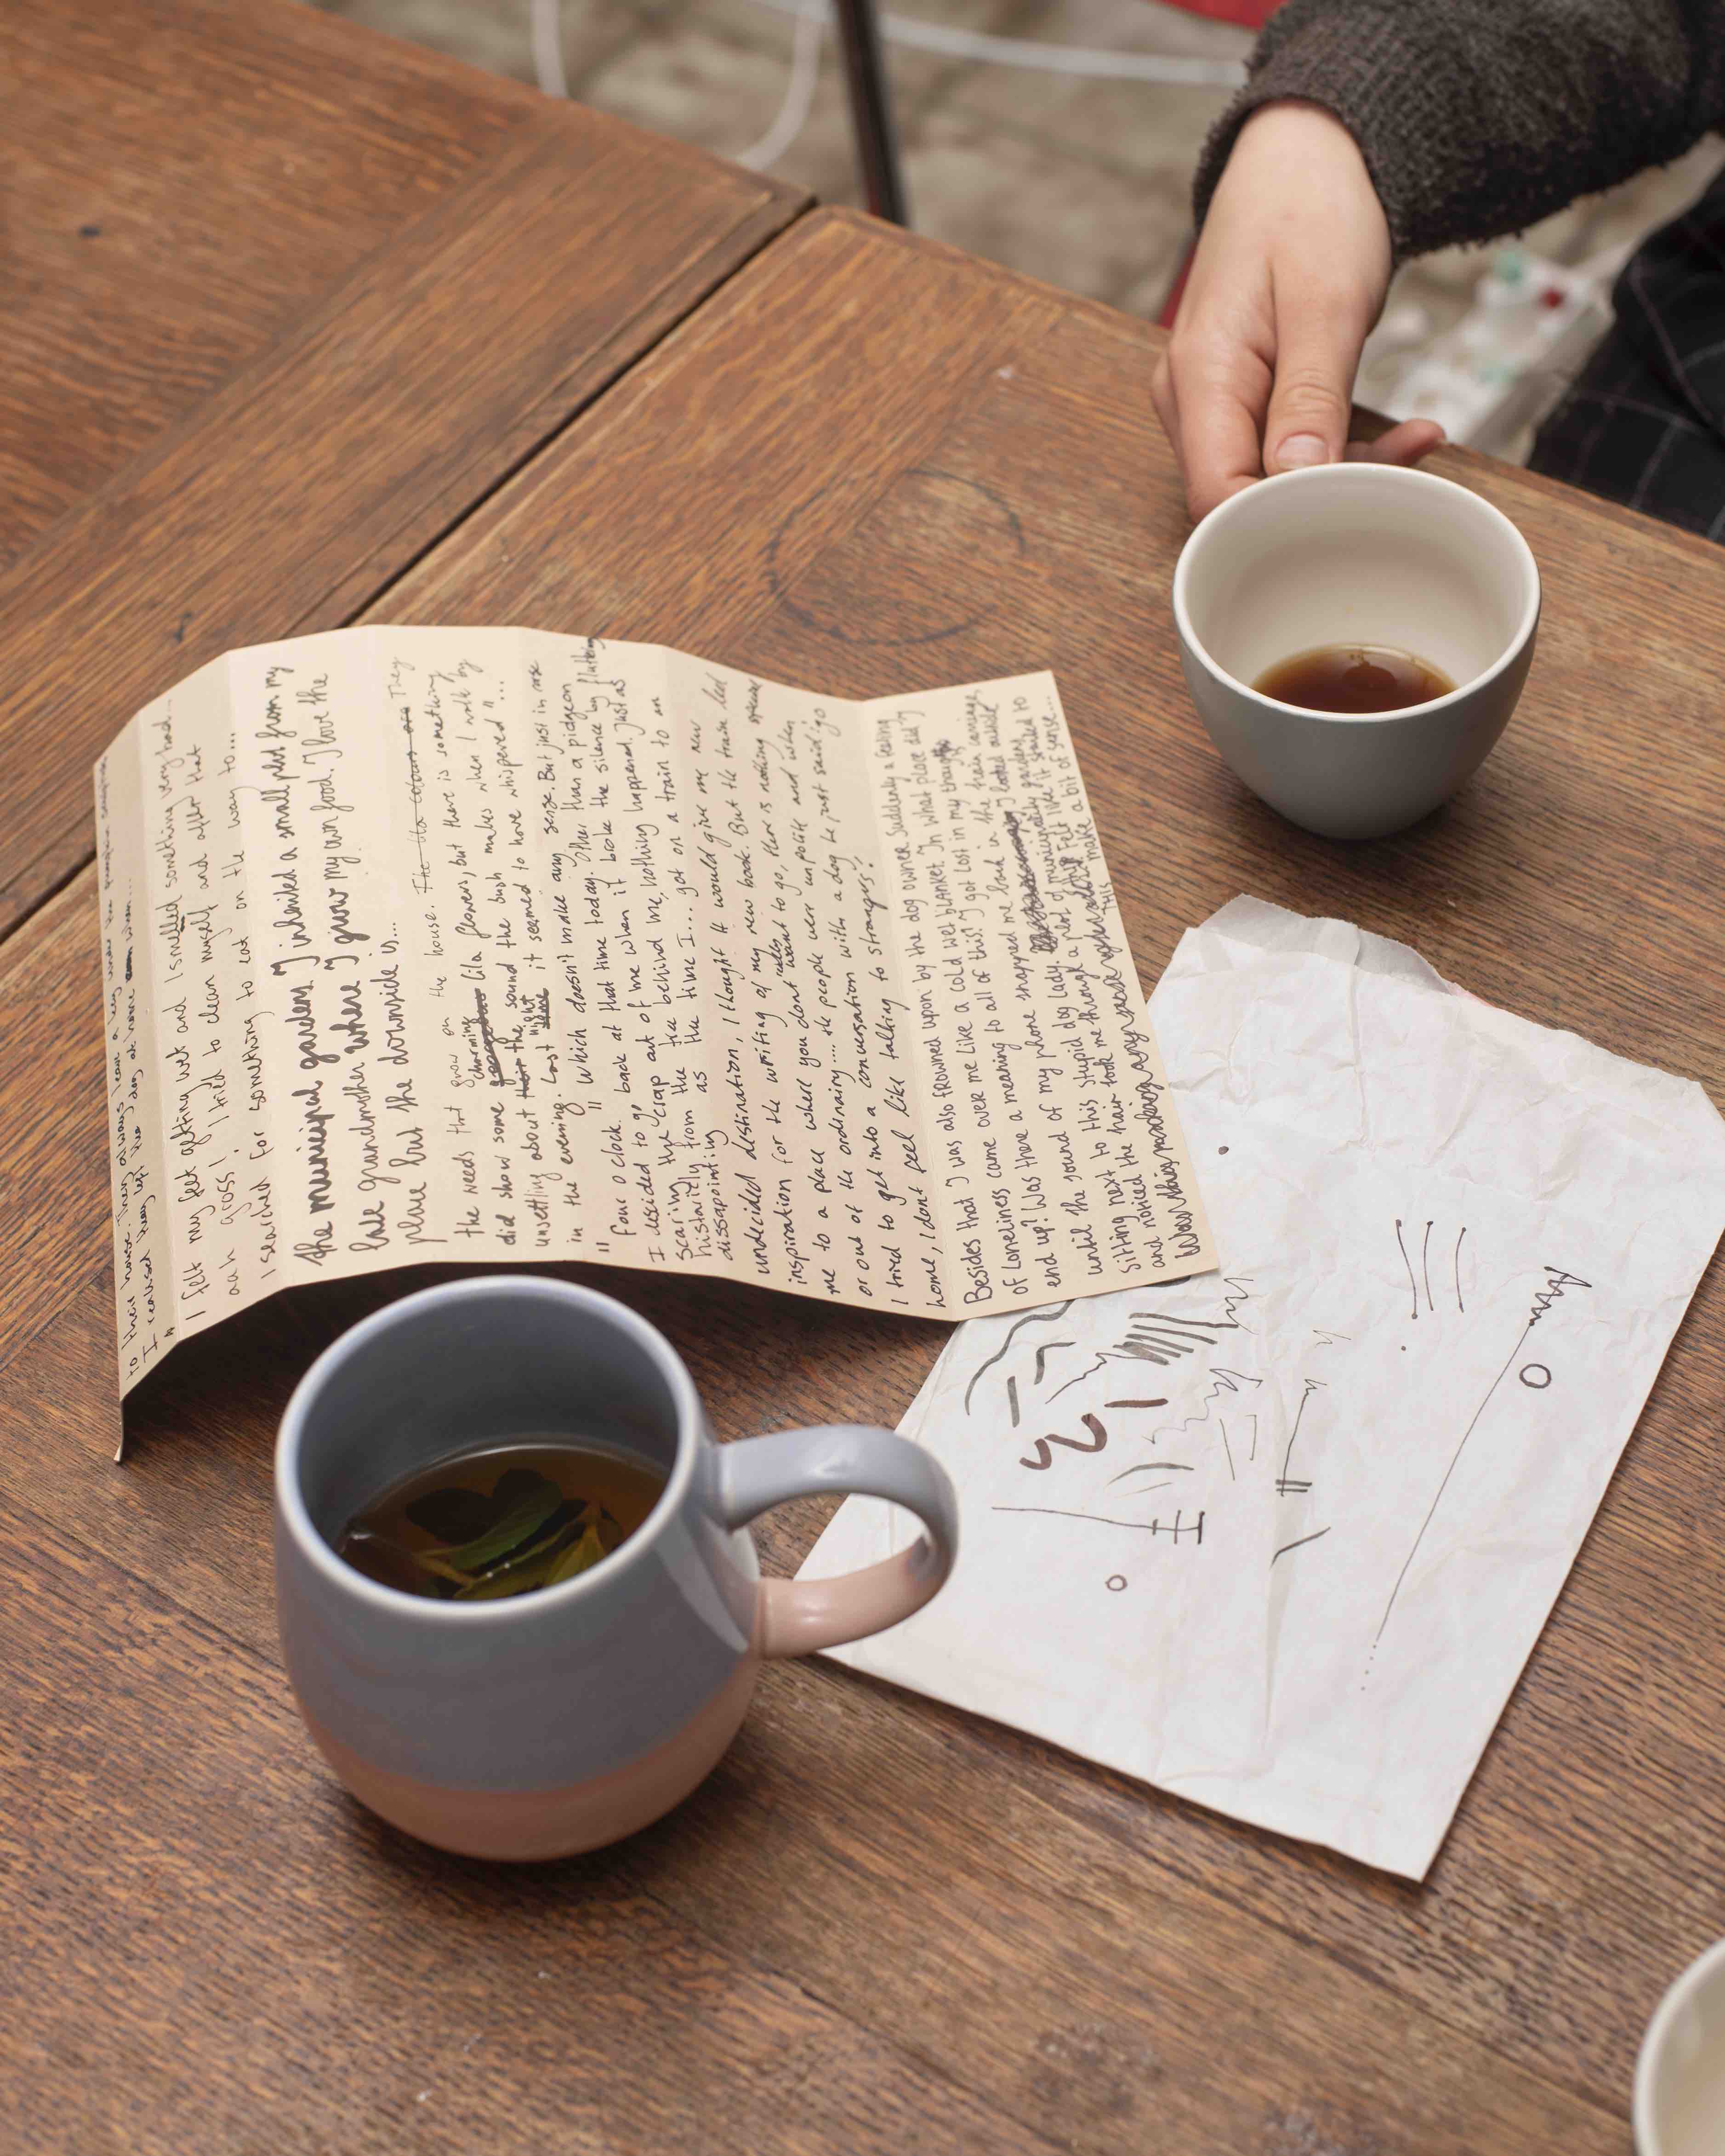 to their house. They always leave a key under the
I realised they left the dog at home
I felt my feet getting wet and I smelled something very bad...
aah gross! I tried to clean myself and after that
I searched for something to eat on the way to...
the municipal gardens. I inherited a small plot from my
late grandmother where I grow my own food. I love the
place but the downside is...
the weeds that grow on the house. The lila colours are They
did show some charming lila flowers, but there is something
unsettling about the sound the bush makes when I walk by
in the evening. Last night it seemed to have whispered "...
" which doesn't make any sense. But just in case
four o clock. back at that time today. Other than a pidgeon
I decided to go out of me when it broke the silence by fluttering
scaring the crap behind me, nothing happened. Just as
histarily from the time I... got on a train to an
dissapointing as the
undecided destination, I thought it would give me new
inspiration for the writing of my new book. But the train led
me to a place where you dont want to go, there is nothing special
or out of the ordinary.... the people were unpolite and when
I tried to get into a conversation with a dog he just said: 'go
home, I dont feel like talking to strangers!'
Besides that I was also frowned upon by the dog owner. Suddenly a feeling
of loneliness came over me like a cold wet blanket. In what place did I
end up? Was there a meaning to all of this? I got lost in my thoughts
until the sound of my phone snapped me back in the train carriage,
sitting next to this stupid dog lady. I looked outside
and noticed the train took me through a plot of municipality gardens
Was this making any sense felt like it started to
THIS make a bit of sense...